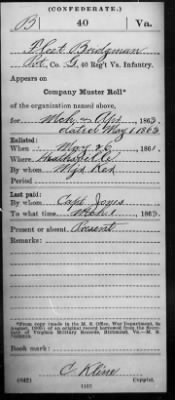 (CONFEDERATE.)
B 40 Va.
Bridgman
Pvt, Co. G, 40 Reg't Va. Infantry.
Appears on
Company Muster Roll*
of the organization named above,
for Mch & Apr, 1863.
dated May 1, 1863
Enlisted:
When May 26, 1861.
Where Heathsville
By whom
Period
Last paid:
By whom Capt Jones
To what time Mch 1, 1863.
Present or absent. Present
Remarks:
*From copy (made in the M. S. Office, War Department, in
August, of an original record borrowed from the
of Virginia Military Records, Richmond, Va.
Book mark:
C Kline
(642) Copyist.